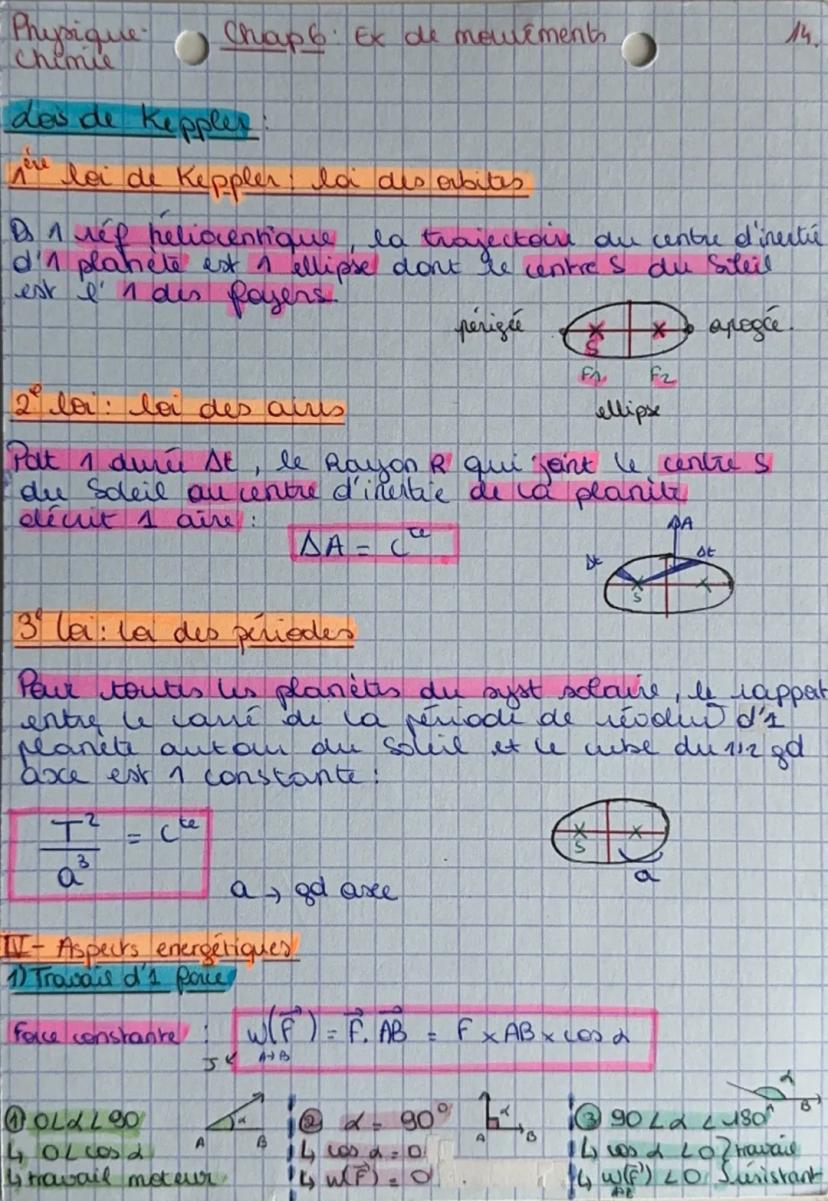 Physique- Chap 6: Ex de mouvements 14.
Chimie
Lois de Keppler:
1ère loi de Keppler: loi des orbites
Ds 1 réf héliocentrique, la trajectoire du centre d'inertie
d'1 planète est 1 ellipse dont le centre S du Soleil
est l'1 des foyers.
périgée apogée.
S
F1 F2
ellipse
2e loi: loi des aires
Pdt 1 durée Δt, le Rayon R qui joint le centre S
du Soleil au centre d'inertie de la planète
décrit 1 aire:
ΔA = Cte
ΔA
Δt Δt
S
3e loi: loi des périodes
Pour toutes les planètes du syst solaire, le rapport
entre le carré de la période de révolut° d'1
planète autour du Soleil et le cube du 1/2 gd
axe est 1 constante:
T²/a³ = Cte
S
a
a → gd axe
IV- Aspects energétiques
1) Travail d'1 force
Force constante: W(F⃗) = F⃗. AB⃗ = F × AB × cos α
J A→B
① 0<α<90 α A B
↳ 0<cos α
↳ travail moteur
② α = 90° α A B
↳ cos α = 0
↳ W(F⃗) = 0
③ 90<α<180° α B
↳ cos α <0 } travail
↳ W(F⃗) <0 } résistant